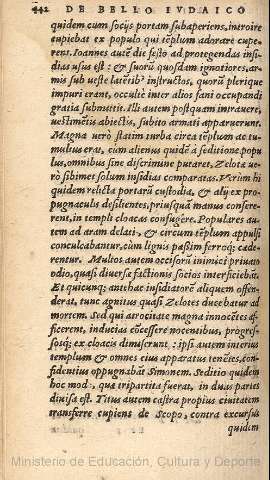 442 DE BELLO IVDAICO
quidem cum socijs portam subaperiens, introire
cupiebat ex populo qui templum adorare cupe-
rent. Ioannes autē die festo ad protegendas insi-
dias usus est: & suorū quosdam ignotiores, ar-
mis sub ueste laterib. instructos, quorū plerique
impuri erant, occultè inter alios fani occupandi
gratia submittit. Illi autem postquam intrauere,
uestimētis abiectis, subito armati apparuerunt.
Magna uerò statim turba circa tēplum ac tu-
multus erat, cum alienus quidē à seditione popu
lus, omnibus sine discrimine putaret, Zelotæ ue-
rò sibimet solum insidias comparatas. Verùm hi
quidem relicta portarū custodia, & alij ex pro-
pugnaculis desilientes, priusquā manus consere-
rent, in templi cloacas confugêre. Populares au-
tem ad aram delati, & circum tēplum appulsi
conculcabantur, cùm lignis passim ferroq; cæde-
rentur. Multos autem occisorū inimici priuato
odio, quasi diuersæ factionis socios interficiebāt.
Et quicunq; antehac insidiatorē aliquem offen-
derat, tunc agnitus quasi Zelotes ducebatur ad
mortem. Sed qui atrocitate magna innocētes af-
ficerent, inducias cōcessere nocentibus, progres-
sosq; ex cloacis dimiserunt: ipsi autem interius
templum & omnes eius apparatus tenētes, con-
fidentius oppugnabāt Simonem. Seditio quidem
hoc modo, quæ tripartita fuerat, in duas partes
diuisa est. Titus autem castra propius ciuitatem
transferre cupiens de Scopo, contra excursus
quidem
Ministerio de Educación, Cultura y Deporte